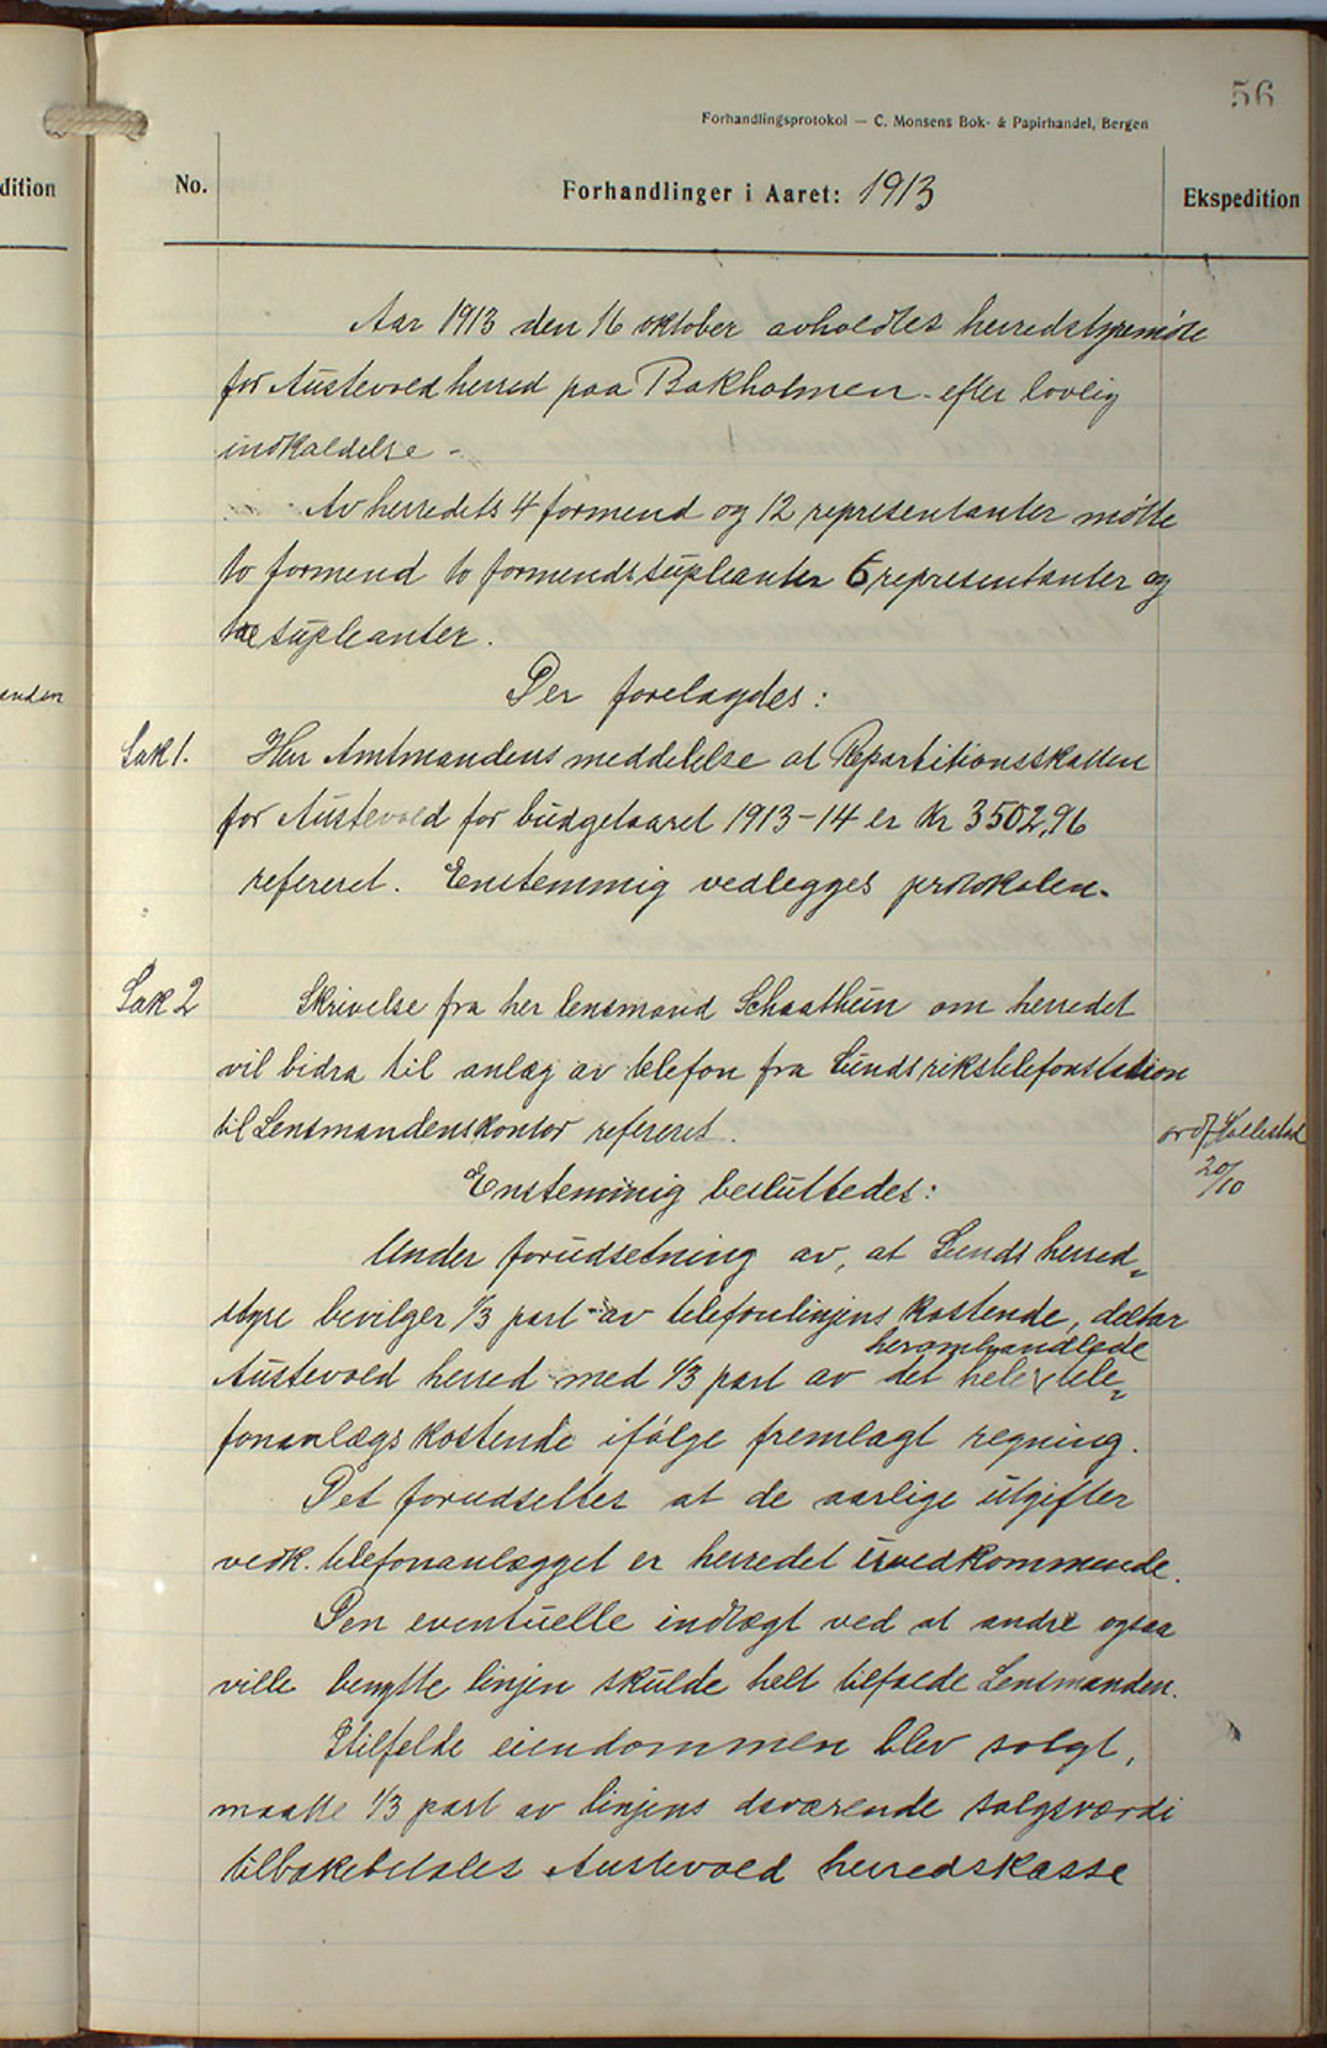 56
Forhandlingsprotokol — C. Monsens Bok- & Papirhandel, Bergen
dition
No.
Forhandlinger i Aaret: 1913
Ekspedition
Aar 1913 den 16 oktober avholdtes herredstyremøte
for Austevold herred paa Bakholmen - efter lovlig
indkaldelse -
Av herredets 4 formend og 12 representanter møtte
to formend to formendssupleanter 6 representanter og
supleanter.
Der forelagdes:
anden
Sak 1. Herr Amtmandens meddelelse at Repartitionsskatten
for Austevold for budgetaaret 1913-14 er Kr 3502,96
refereret. Enstemmig vedlegges protokolen.
Sak 2 Skrivelse fra her lensmand Schaathun om herredet
vil bidra til anlæg av telefon fra Sunds rikstelefonstation
til Lensmandenskontor refereret.
20/10
Enstemmig besluttedes:
Under forudsetning av, at Sunds herred„
styre bevilger 1/3 part av telefonlinjens kostende, deltar
heromhandlede
Austevold herred med 1/3 part av det hele tele„
fonanlægs kostende ifølge fremlagt regning.
Det forudsettes at de aarlige utgifter
vedk. telefonanlægget er herredet uvedkommende.
Den eventuelle indtægt ved at andre ogsaa
ville benytte linjen skulde helt tilfalde Lensmanden.
Itilfelde eiendommen blev solgt,
maatte 1/3 part av linjens daværende salgsværdi
tilbakebetales Austevold herredskasse